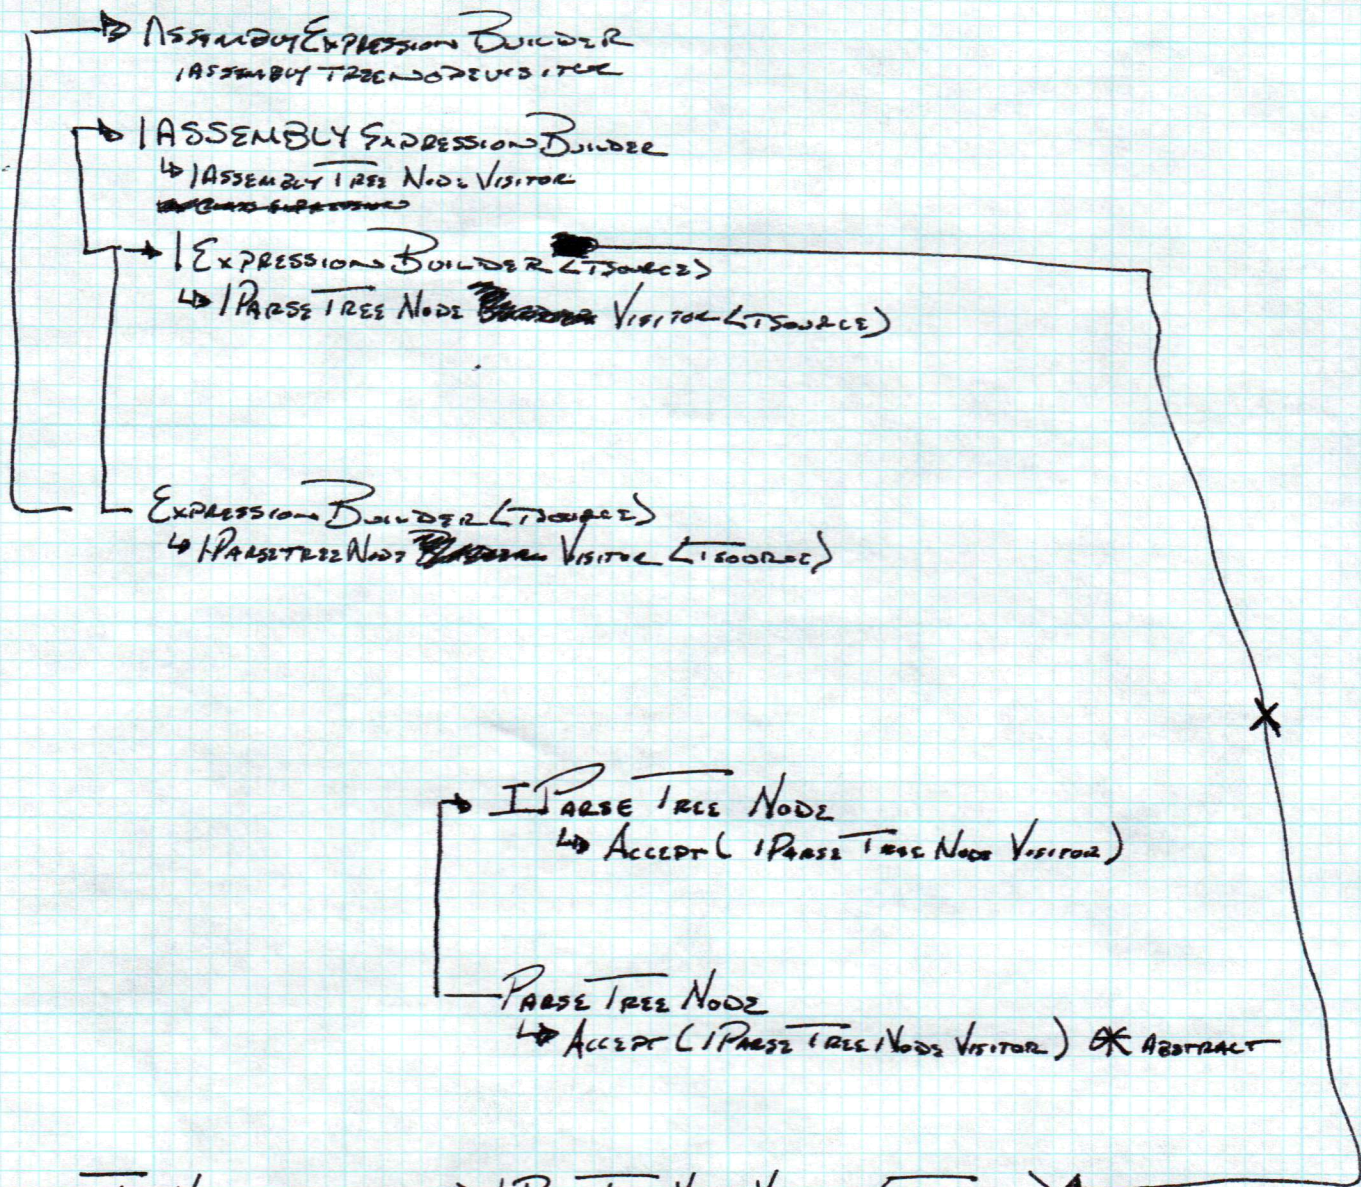 AssemblyExpression Builder
IAssembly TreeNodeVisitor
IAssembly Expression Builder
↳ IAssembly Tree Node Visitor
IExpression Builder <TSource>
↳ IParse Tree Node Visitor <TSource>
Expression Builder <TSource>
↳ IParseTree Node Visitor <TSource>
IParse Tree Node
↳ Accept ( IParse Tree Node Visitor )
Parse Tree Node
↳ Accept ( IParse Tree Node Visitor ) * Abstract